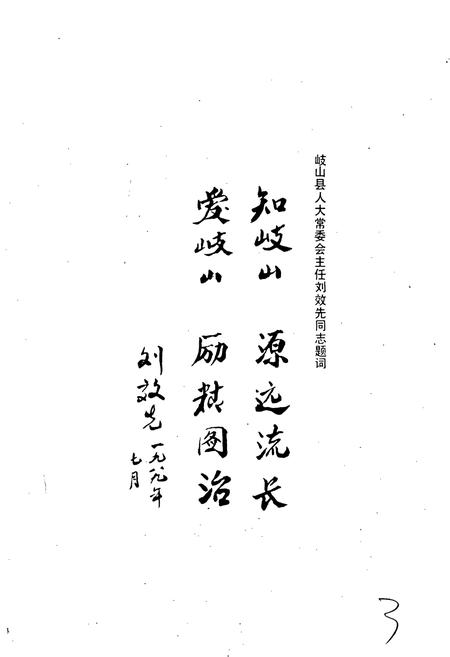 岐山县人大常委会主任刘效先同志题词
知岐山 源远流长
爱岐山 励精图治
刘效先 一九八九年
七月
3